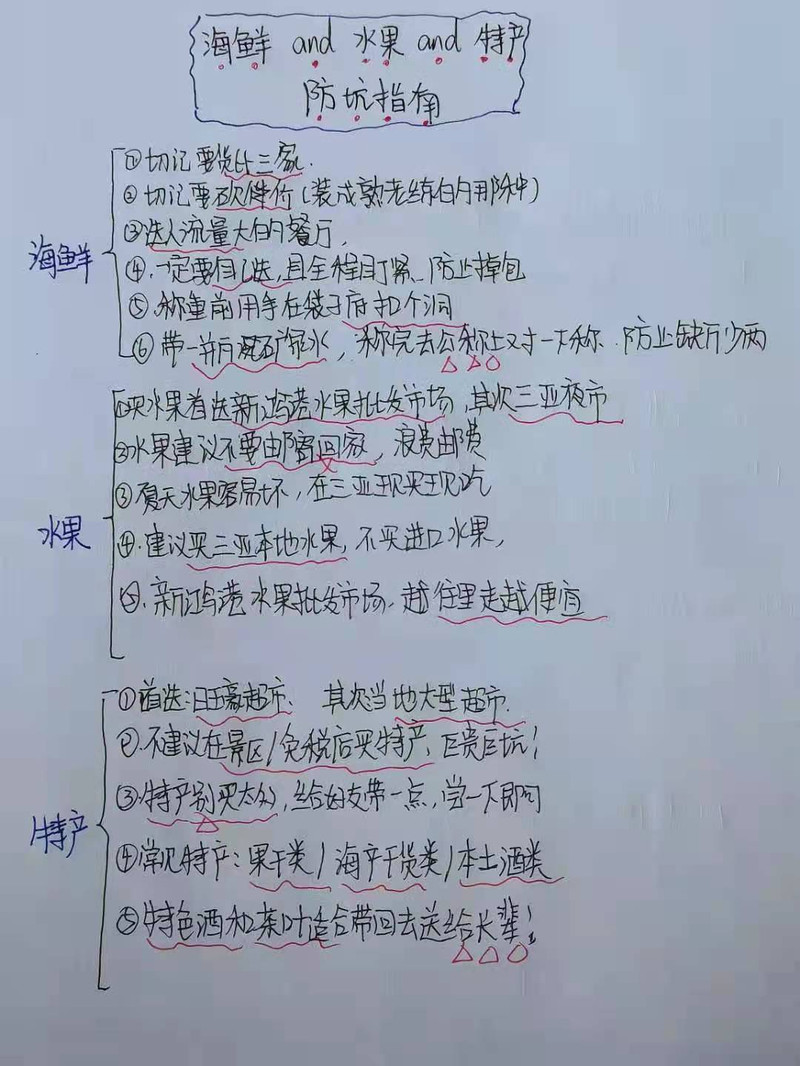 海鲜 and 水果 and 特产
防坑指南
海鲜
①切记要货比三家.
②切记要砍价(装成熟老练的用户)
③选人流量大的餐厅,
④.一定要自己选,且全程盯紧.防止掉包
⑤.称重前用手在袋子底扣个洞
⑥带一瓶矿泉水,称完去公称上对一下称.防止缺斤少两
水果
①买水果首选新鸿港水果批发市场,其次三亚夜市
②水果建议不要邮寄回家,浪费邮费
③夏天水果容易坏,在三亚现买现吃
④.建议买三亚本地水果,不买进口水果,
⑤.新鸿港水果批发市场.越往里走越便宜
特产
①首选:旺豪超市.其次当地大型超市.
②.不建议在景区/免税店买特产,巨贵巨坑!
③特产别买太多,给好友带一点,尝一下即可
④常见特产:果干类/海产干货类/本土酒类
⑤特色酒和茶叶适合带回去送给长辈!